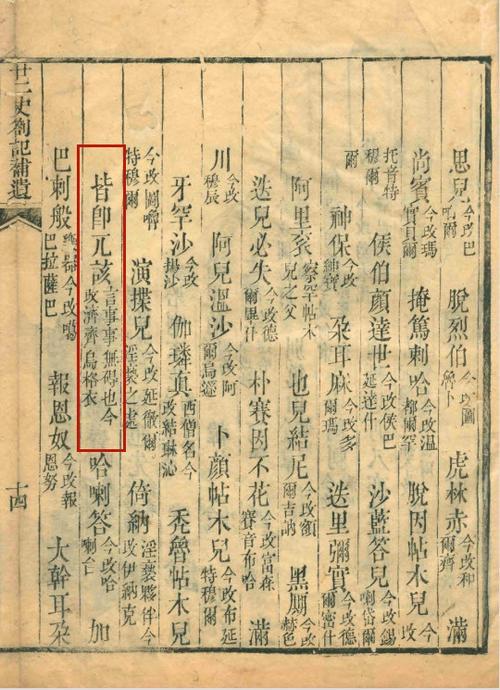 思兒今改巴爾 脫烈伯今改圖魯卜 虎林赤今改和爾齊 滿
尚賓今改瑪貝爾 掩篤剌哈今改溫都爾罕 脫因帖木兒今改
托音特穆爾 侯伯顏達世今改侯巴延達什 沙藍答兒今改錫喇岱爾
爾 神保今改紳寶 朶耳麻今改多爾瑪 迭里彌實今改德爾密什
阿里衮察罕帖木兒之父 也兒結尼今改額爾吉訥 黑厠今改赫色
迭兒必失今改德爾畢什 朴賽因不花今改富森賽音布哈 滿
川今改穆辰 阿兒溫沙今改阿爾烏遜 卜顏帖木兒今改布延特穆爾
牙罕沙今改揚沙 伽璘真西僧名今改結琳沁 禿魯帖木兒
今改圖嚕特穆爾 演揲兒今改延徹爾淫褻之處 倚納淫褻夥伴今改伊納克
皆卽兀該言事事無碍也今改濟齊烏格衣 哈喇答今改哈喇台 加
巴剌般樂器今改噶巴拉薩巴 報恩奴今改報恩努 大斡耳朶
廿二史劄記補遺
十四